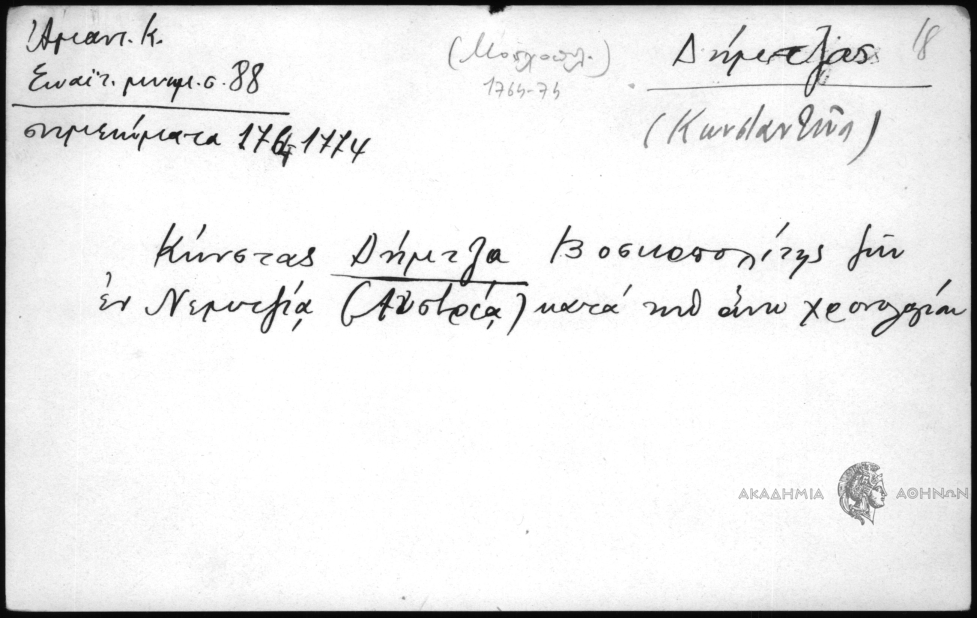 Ἀμαντ. Κ.
Σιναΐτ. μνημ. σ. 88
σημειώματα 1764 1774
(Μοσχοπολ.)
1764-74
Δήμετζας
18
(Κωνσταντῖνος)
Κώνστας Δήμετζα Βοσκοπολίτης ζῶν
ἐν (Αὐστρίᾳ) κατὰ τὴν ἄνω χρονολογίαν
ΑΚΑΔΗΜΙΑ ΑΘΗΝΩΝ